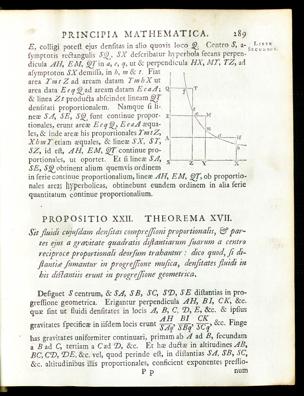 PRINCIPIA MATHEMATICA. 289
E, colligi potest ejus densitas in alio quovis loco Q. Centro S, a-
LIBER
SECUNDUS.
symptotis rectangulis SQ, SX describatur hyperbola secans perpen-
dicula AH, EM, QT in a, e, q, ut & perpendicula HX, MY, TZ, ad
asymptoton SX demissa, in h, m & t. Fiat
area YmtZ ad aream datam YmhX ut
area data EeqQ ad aream datam EeaA;
& linea Zt producta abscindet lineam QT
densitati proportionalem. Namque si li-
neæ SA, SE, SQ sunt continue propor-
tionales, erunt areæ EeqQ, EeaA æqua-
les, & inde areæ his proportionales YmtZ,
XhmY etiam æquales, & lineæ SX, SY,
SZ, id est, AH, EM, QT continue pro-
portionales, ut oportet. Et si lineæ SA,
SE, SQ obtinent alium quemvis ordinem
in serie continue proportionalium, lineæ AH, EM, QT, ob proportio-
nales areas hyperbolicas, obtinebunt eundem ordinem in alia serie
quantitatum continue proportionalium.
PROPOSITIO XXII. THEOREMA XVII.
Sit fluidi cujusdam densitas compressioni proportionalis, & par-
tes ejus a gravitate quadratis distantiarum suarum a centro
reciproce proportionali deorsum trahantur : dico quod, si di-
stantiæ sumantur in progressione musica, densitates fluidi in
his distantiis erunt in progressione geometrica.
Designet S centrum, & SA, SB, SC, SD, SE distantias in pro-
gressione geometrica. Erigantur perpendicula AH, BI, CK, &c.
quæ sint ut fluidi densitates in locis A, B, C, D, E, &c. & ipsius
gravitates specificæ in iisdem locis erunt AH/SAq, BI/SBq, CK/SCq, &c. Finge
has gravitates uniformiter continuari, primam ab A ad B, secundam
a B ad C, tertiam a C ad D, &c. Et hæ ductæ in altitudines AB,
BC, CD, DE, &c. vel, quod perinde est, in distantias SA, SB, SC,
&c. altitudinibus illis proportionales, conficient exponentes pressio-
P p num